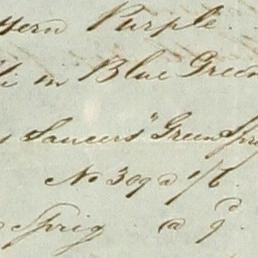 ttern Purple.
in Blue Green
Saucers "Green Spri
No 309 @ 1/6.
Sprig @ 9d